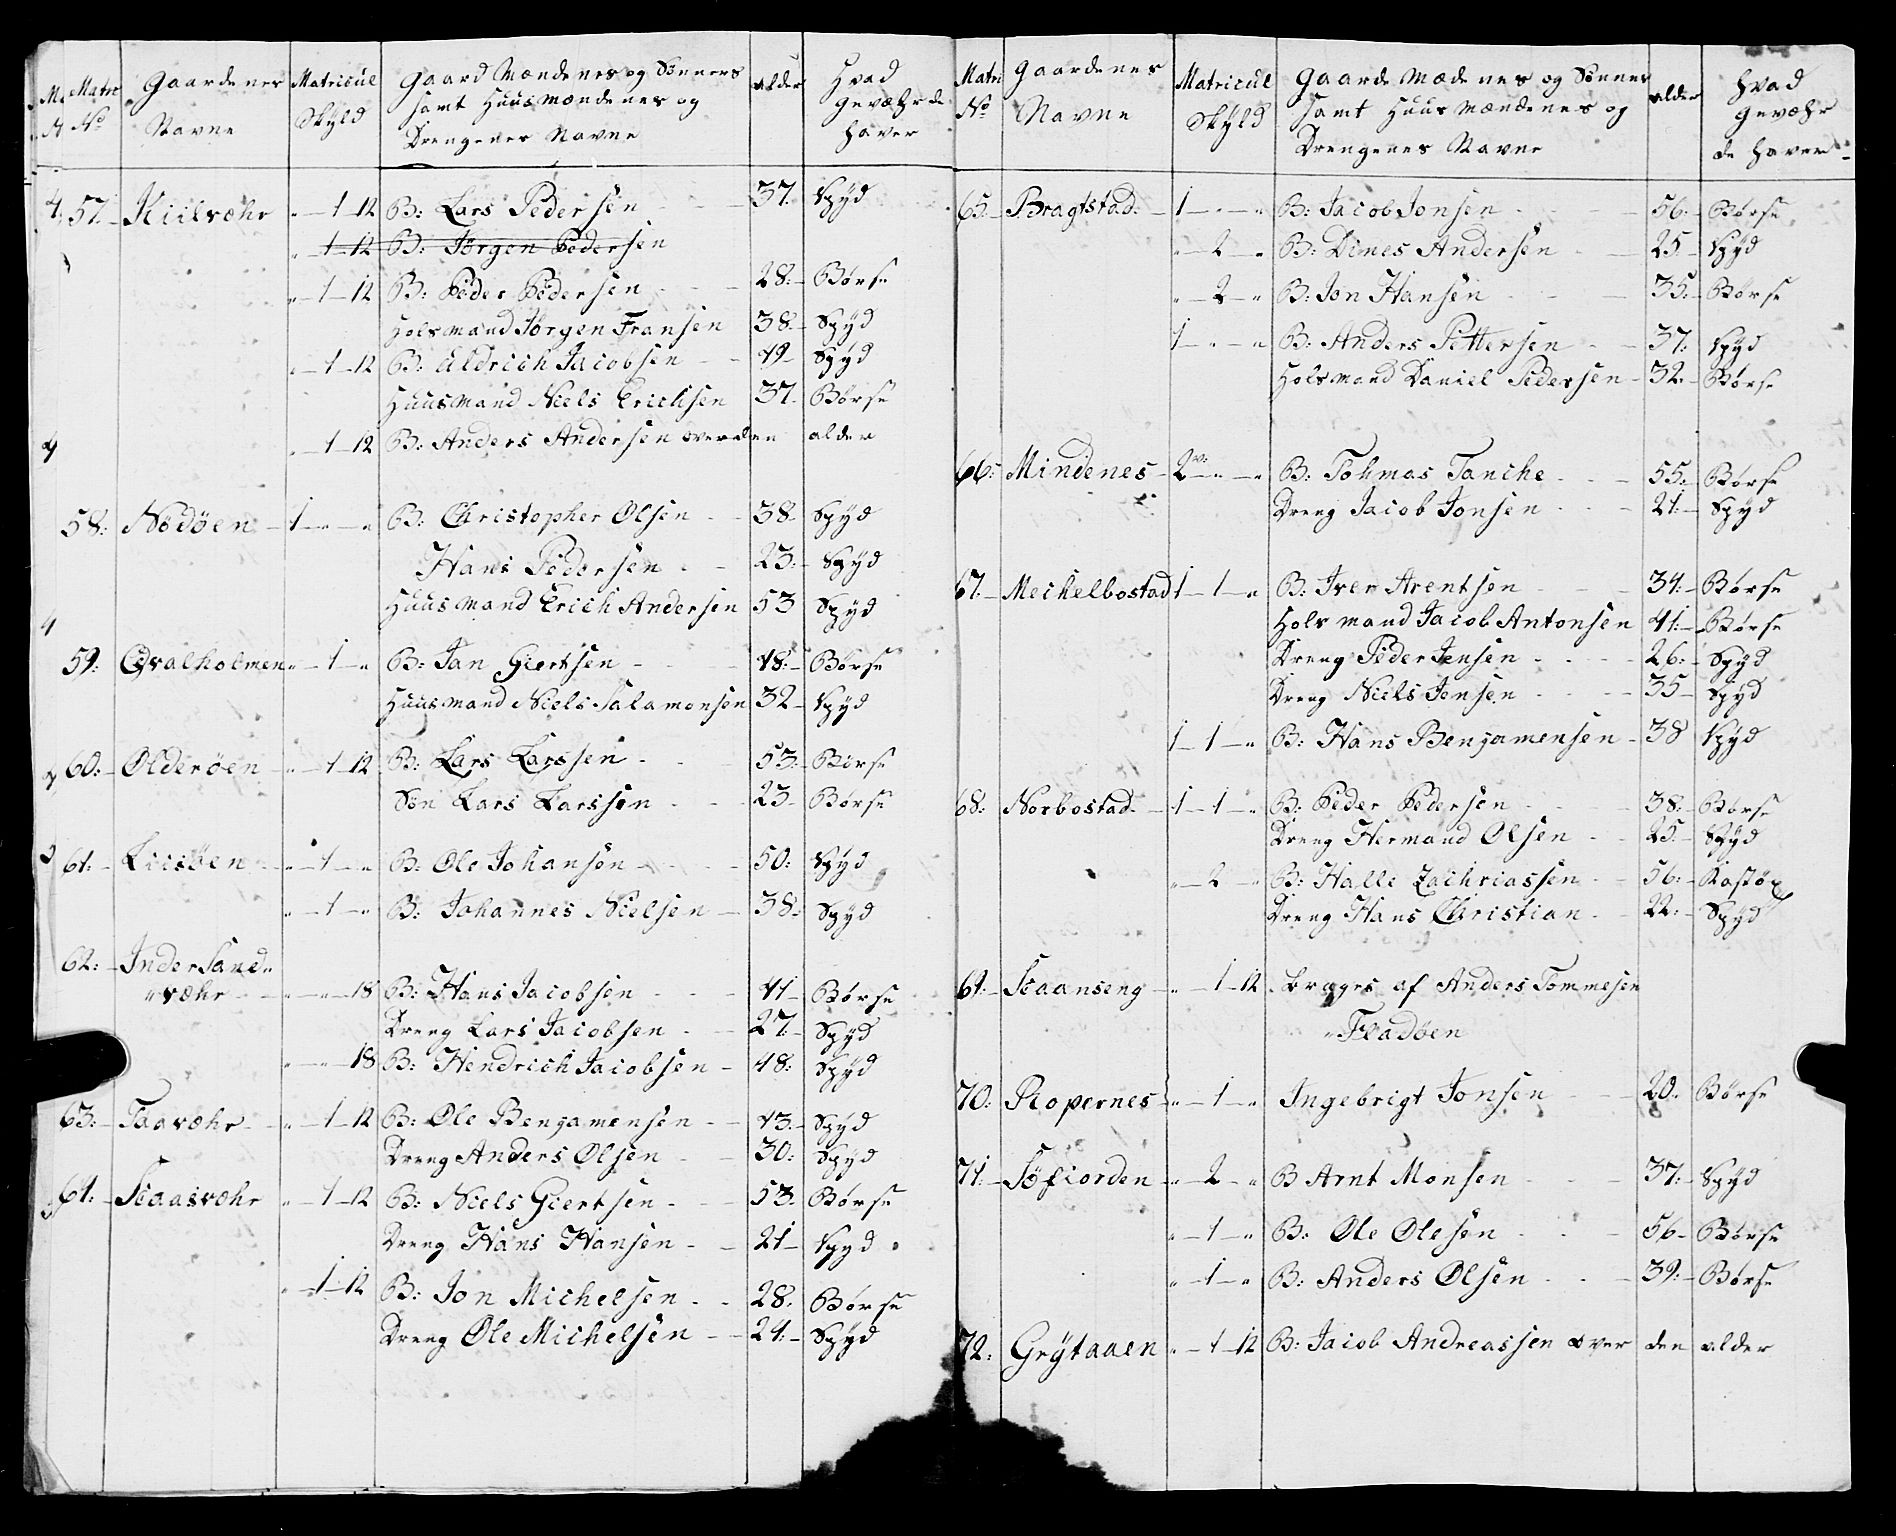 Matr No Gaardenes Navne Matricul Skyld Gaard Mændenes og Sønners samt Huusmændenes og Drengenes Navne alder Hvad gevæhr de haver
57. Kiilvæhr „ — 1 — 12 B: Lars Pedersen 37. Spyd
„ 1 — 12 B: Jørgen Pedersen
„ — 1 — 12 B: Peder Pedersen 28: Børse
Holsmand Jørgen Fransen 38. Spyd
„ — 1 — 12 B: Aldrich Jacobsen 49 Spyd
Huusmand Niels Erichsen 37. Børse
„ — 1 — 12 B: Anders Andersen over den alder
58: Nodøen 1 — „ — „ B: Christopher Olsen 38 Spyd
Hans Pedersen 23: Spyd
Huusmand Erich Andersen 53 Spyd
59: Qvalholmen „ — 1 — „ B: Jan Giertsen 48: Børse
Huusmand Niels Salamonsen 32 Spyd
60: Olderøen „ — 1 — 12 B: Lars Larssen 53: Børse
Søn Lars Larssen 23 Børse
61: Liisøen „ — 1 — „ B: Ole Johansen 50: Spyd
„ — 1 — „ B: Johannes Nielsen 38: Spyd
62: Inder Sand„
„væhr „ — „ — 18 B: Hans Jacobsen 41 Børse
Dreng Lars Jacobsen 27. Spyd
„ — „ — 18 B: Hendrich Jacobsen 48: Spyd
63: Taavæhr „ — 1 — 12 B: Ole Bengamensen 43 Spyd
Dreng Anders Olsen 30: Spyd
64: Staasvæhr „ — 1 — 12 B: Niels Giertsen 53. Børse
Dreng Hans Hansen 21 Spyd
„ — 1 — 12 B: Jon Michelsen 28. Børse
Dreng Ole Michelsen 24. Spyd
Matr No Gaardenes Navne Matricul Skyld Gaarde Mædenes og Sønner samt Huusmændenes og Drengenes Navne alder Hvad gevæhr de haver
65. Bragtstad 1 — „ — „ B: Jacob Jonsen 56. Børse
„ — 2 — „ B: Dines Andersen 25 Spyd
„ — 2 — „ B: Jon Hansen 35: Børse
1 — „ — „ B: Anders Pettersen 37: Spyd
Holsmand Daniel Pedersen 32. Børse
66: Mindenes 2 — „ — „ B: Tohmas Tanche 55: Børse
Dreng Jacob Jonsen 21: Spyd
67. Meichelbostad 1 — 1 — „ B: Iver Arentsen 34: Børse
Holsmand Jacob Antonsen 41: Børse
Dreng Peder Jensen 26: Spyd
Dreng Niels Jensen 35 Spyd
1 — 1 — „ B: Hans Bengamensen 38 Spyd
68: Norbostad 1 — 1 — „ B: Peder Pedersen 38: Børse
Dreng Hermand Olsen 25. Spyd
„ — 2 — „ B: Halle Zachriassen 56: Kastøx
Dreng Hans Christian 22: Spyd
69. Staanseng „ — 1 — 12 bruges af Anders Tommesen
„Fladøen
70: Ropernes „ — 1 — „ Ingebrigt Jonsen 20. Børse
71. Søfiorden „ — 2 — „ B Arnt Monsen 37: Spyd
„ — 1 — „ B: Ole Olesen 56 Børse
„ — 1 — „ B: Anders Olsen 39: Børse
72: Grÿtaaen „ — 1 — 12 B: Jacob Andreassen over den alder